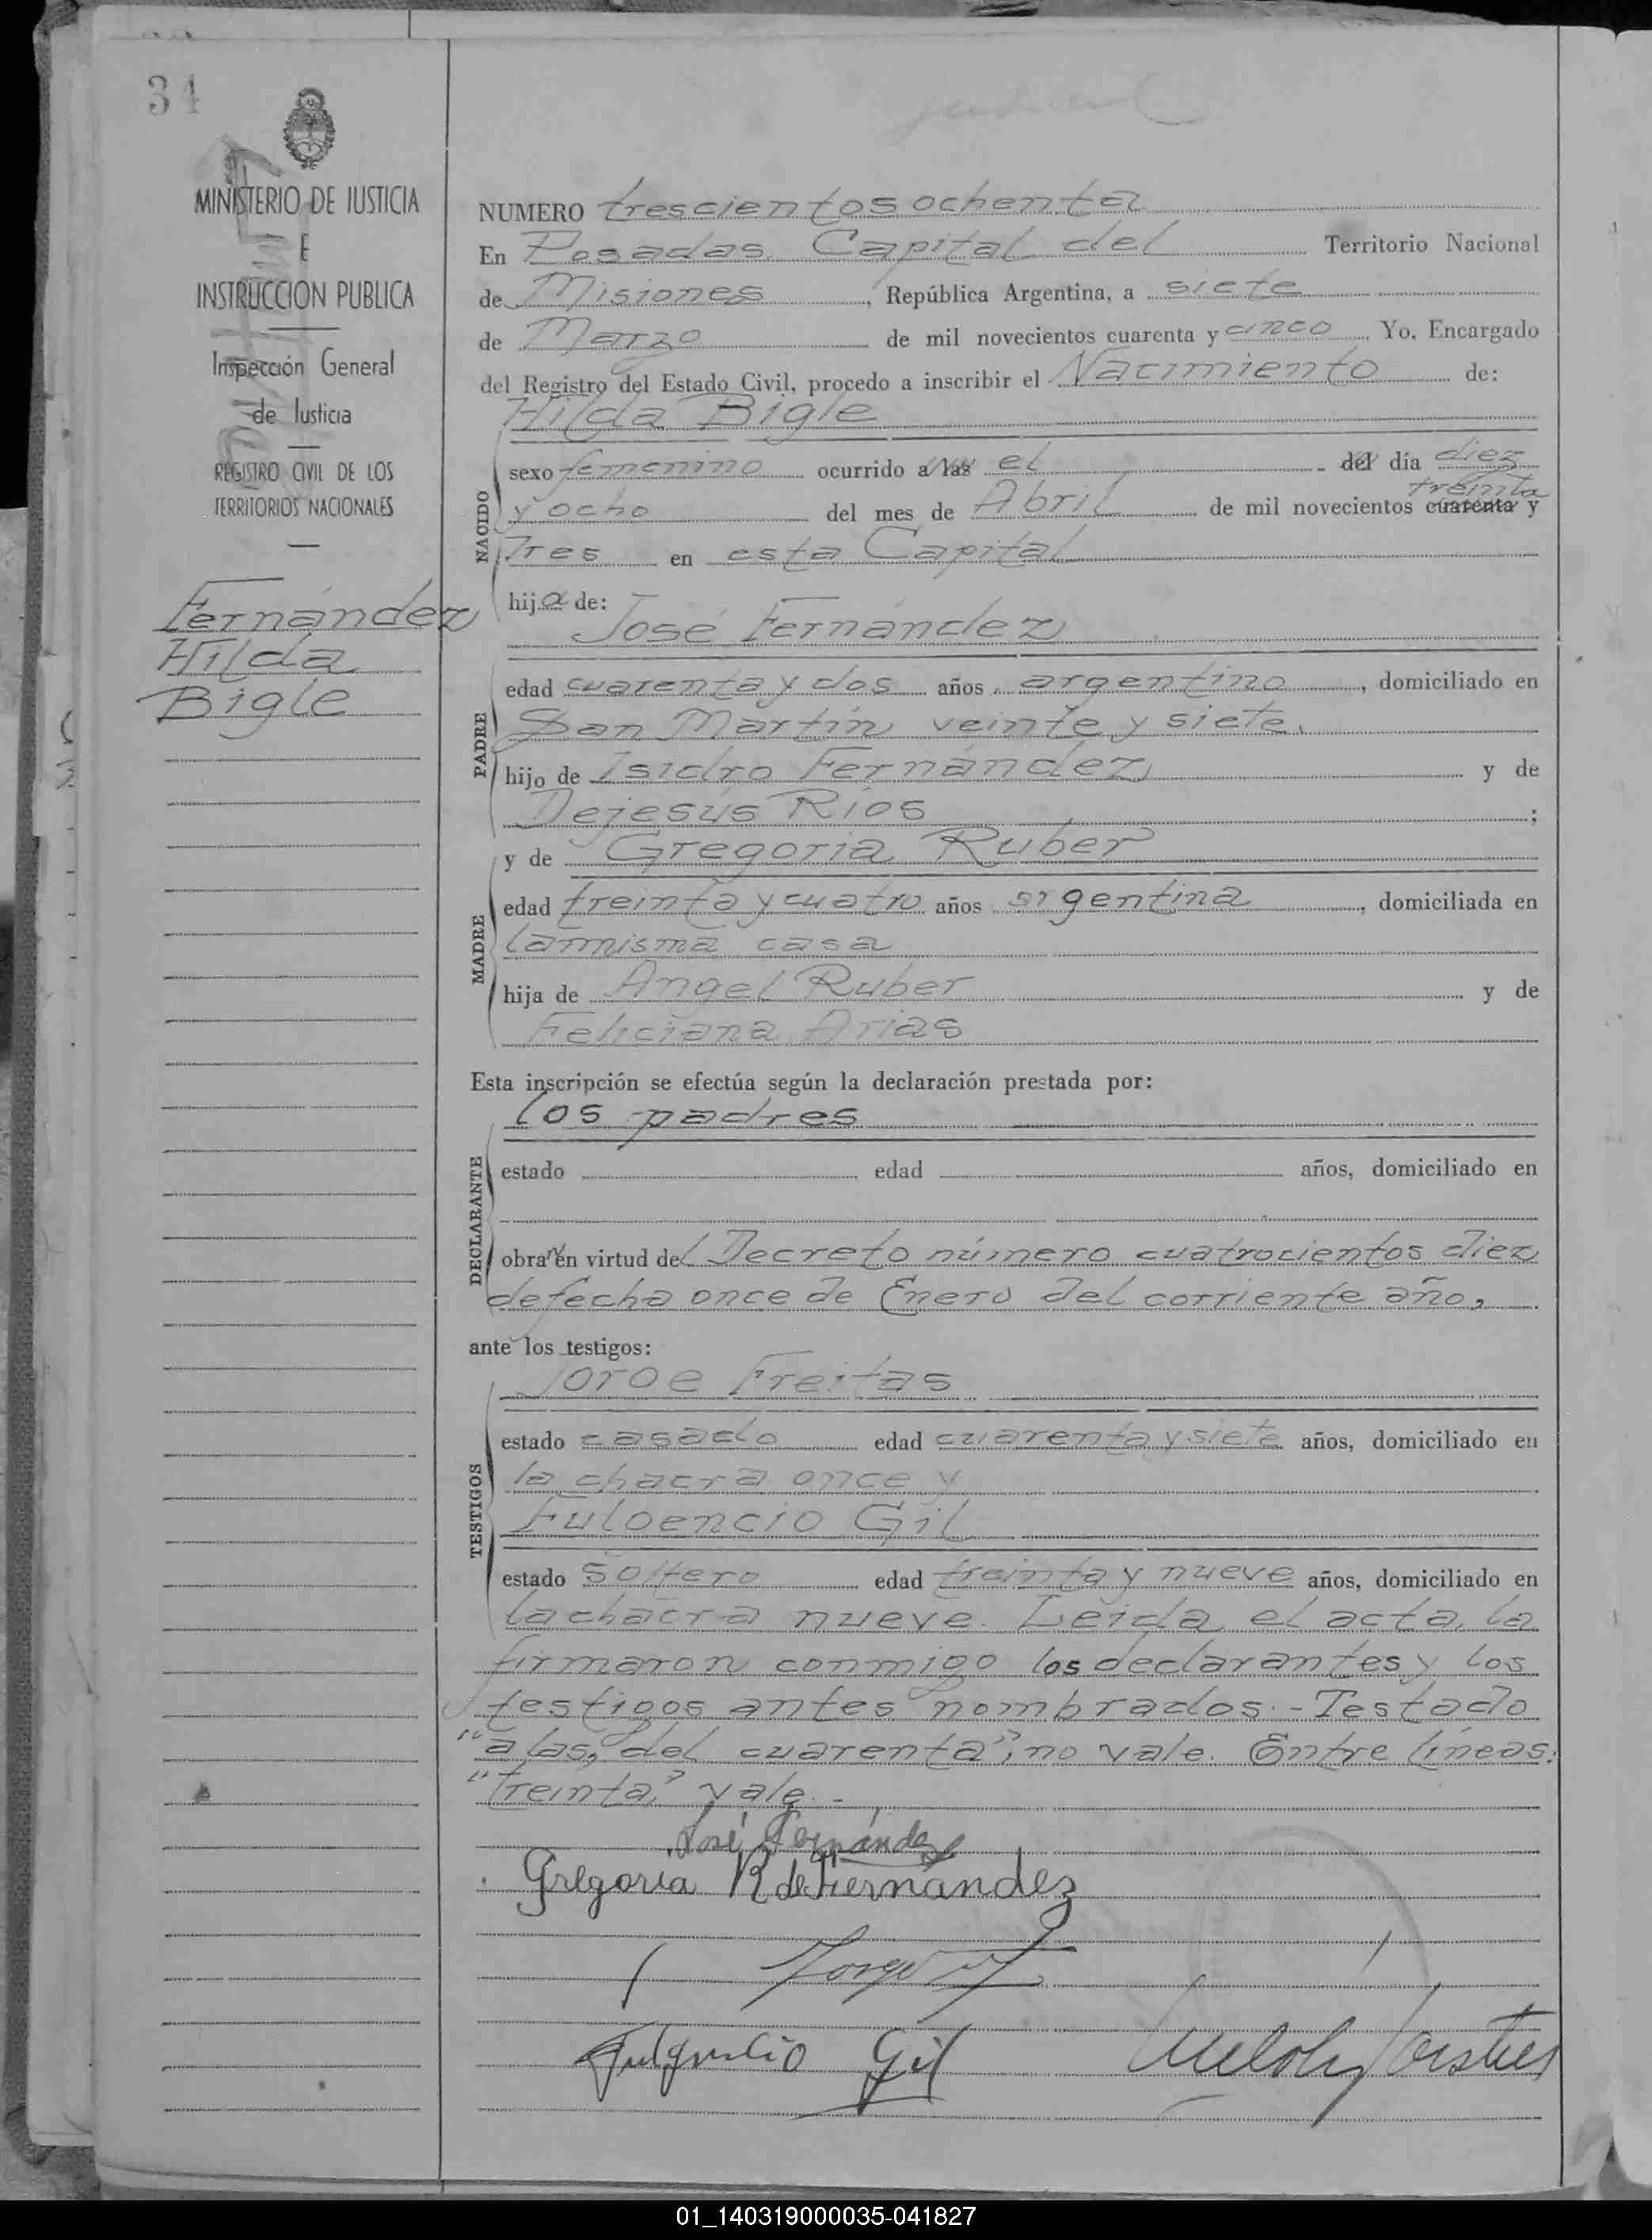 34
MINISTERIO DE JUSTICIA
E
INSTRUCCION PUBLICA
Inspección General
de Justicia
REGISTRO CIVIL DE LOS
TERRITORIOS NACIONALES
Fernández
Hilda
Bigle
NUMERO trescientos ochenta
En Posadas, Capital del Territorio Nacional
de Misiones, República Argentina, a siete
de Marzo de mil novecientos cuarenta y cinco Yo, Encargado
del Registro del Estado Civil, procedo a inscribir el Nacimiento de:
Hilda Bigle
NACIDO
sexo femenino ocurrido a las el del día diez
treinta
y ocho del mes de Abril de mil novecientos cuarenta y
Tres en esta Capital
hija de:
José Fernández
PADRE
edad cuarenta y dos años, argentino, domiciliado en
San Martín veinte y siete,
hijo de Isidro Fernández y de
Dejesús Ríos;
y de Gregoria Ruber
MADRE
edad treinta y cuatro años argentina, domiciliada en
la misma casa
hija de Angel Ruber y de
Feliciana Arias
Esta inscripción se efectúa según la declaración prestada por:
los padres
DECLARANTE
estado edad años, domiciliado en
obran en virtud del Decreto número cuatrocientos diez
de fecha once de Enero del corriente año,
ante los testigos:
Jorge Freitas
TESTIGOS
estado casado edad cuarenta y siete años, domiciliado en
la chacra once y
Fulgencio Gil
estado soltero edad treinta y nueve años, domiciliado en
la chacra nueve. Leida el acta, la
firmaron conmigo los declarantes y los
testigos antes nombrados.- Testado
"a las, del cuarenta", no vale. Entre líneas:
"treinta" vale.-
José Fernández
Gregoria R de Fernandez
Jorge
Fulgencio Gil
01_140319000035-041827